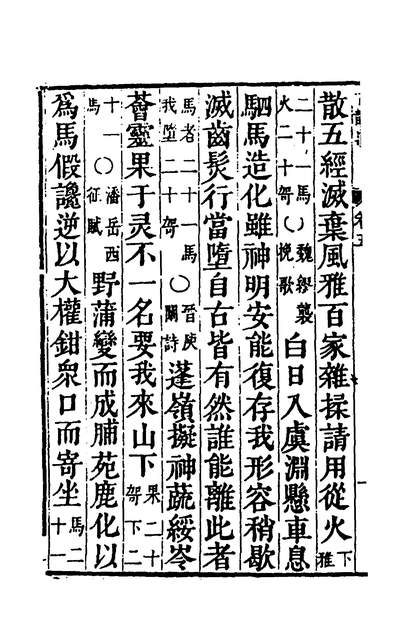 卷五
散五經滅棄風雅百家雜揉請用從火下雅
二十一馬火二十哿〇魏繆襲挽歌白日入虞淵懸車息
駟馬造化雖神明安能復存我形容稍歇
滅齒髮行當墮自古皆有然誰能離此者
馬者二十一馬我墮二十哿〇晉庾闡詩蓬嶺擬神蔬綏岑
薈靈果于灵不一名要我來山下果二十哿下二
十一馬〇潘岳西征賦野蒲變而成脯苑鹿化以
為馬假讒逆以大權鉗衆口而寄坐馬二十一